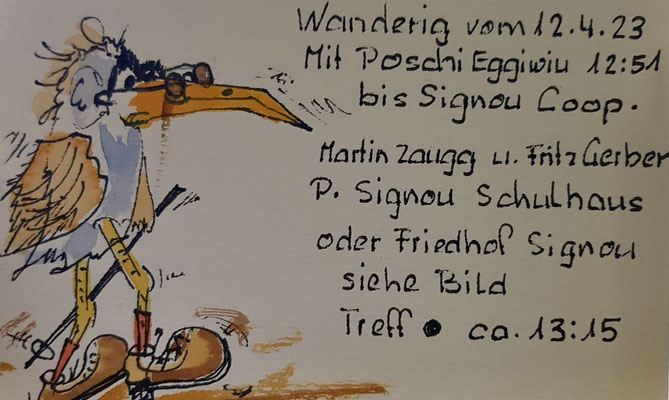 Wanderig vom 12.4.23
Mit Poschi Eggiwiu 12:51
bis Signou Coop.
Martin Zaugg u. Fritz Gerber
P. Signou Schulhaus
oder Friedhof Signou
siehe Bild
Treff ● ca. 13:15